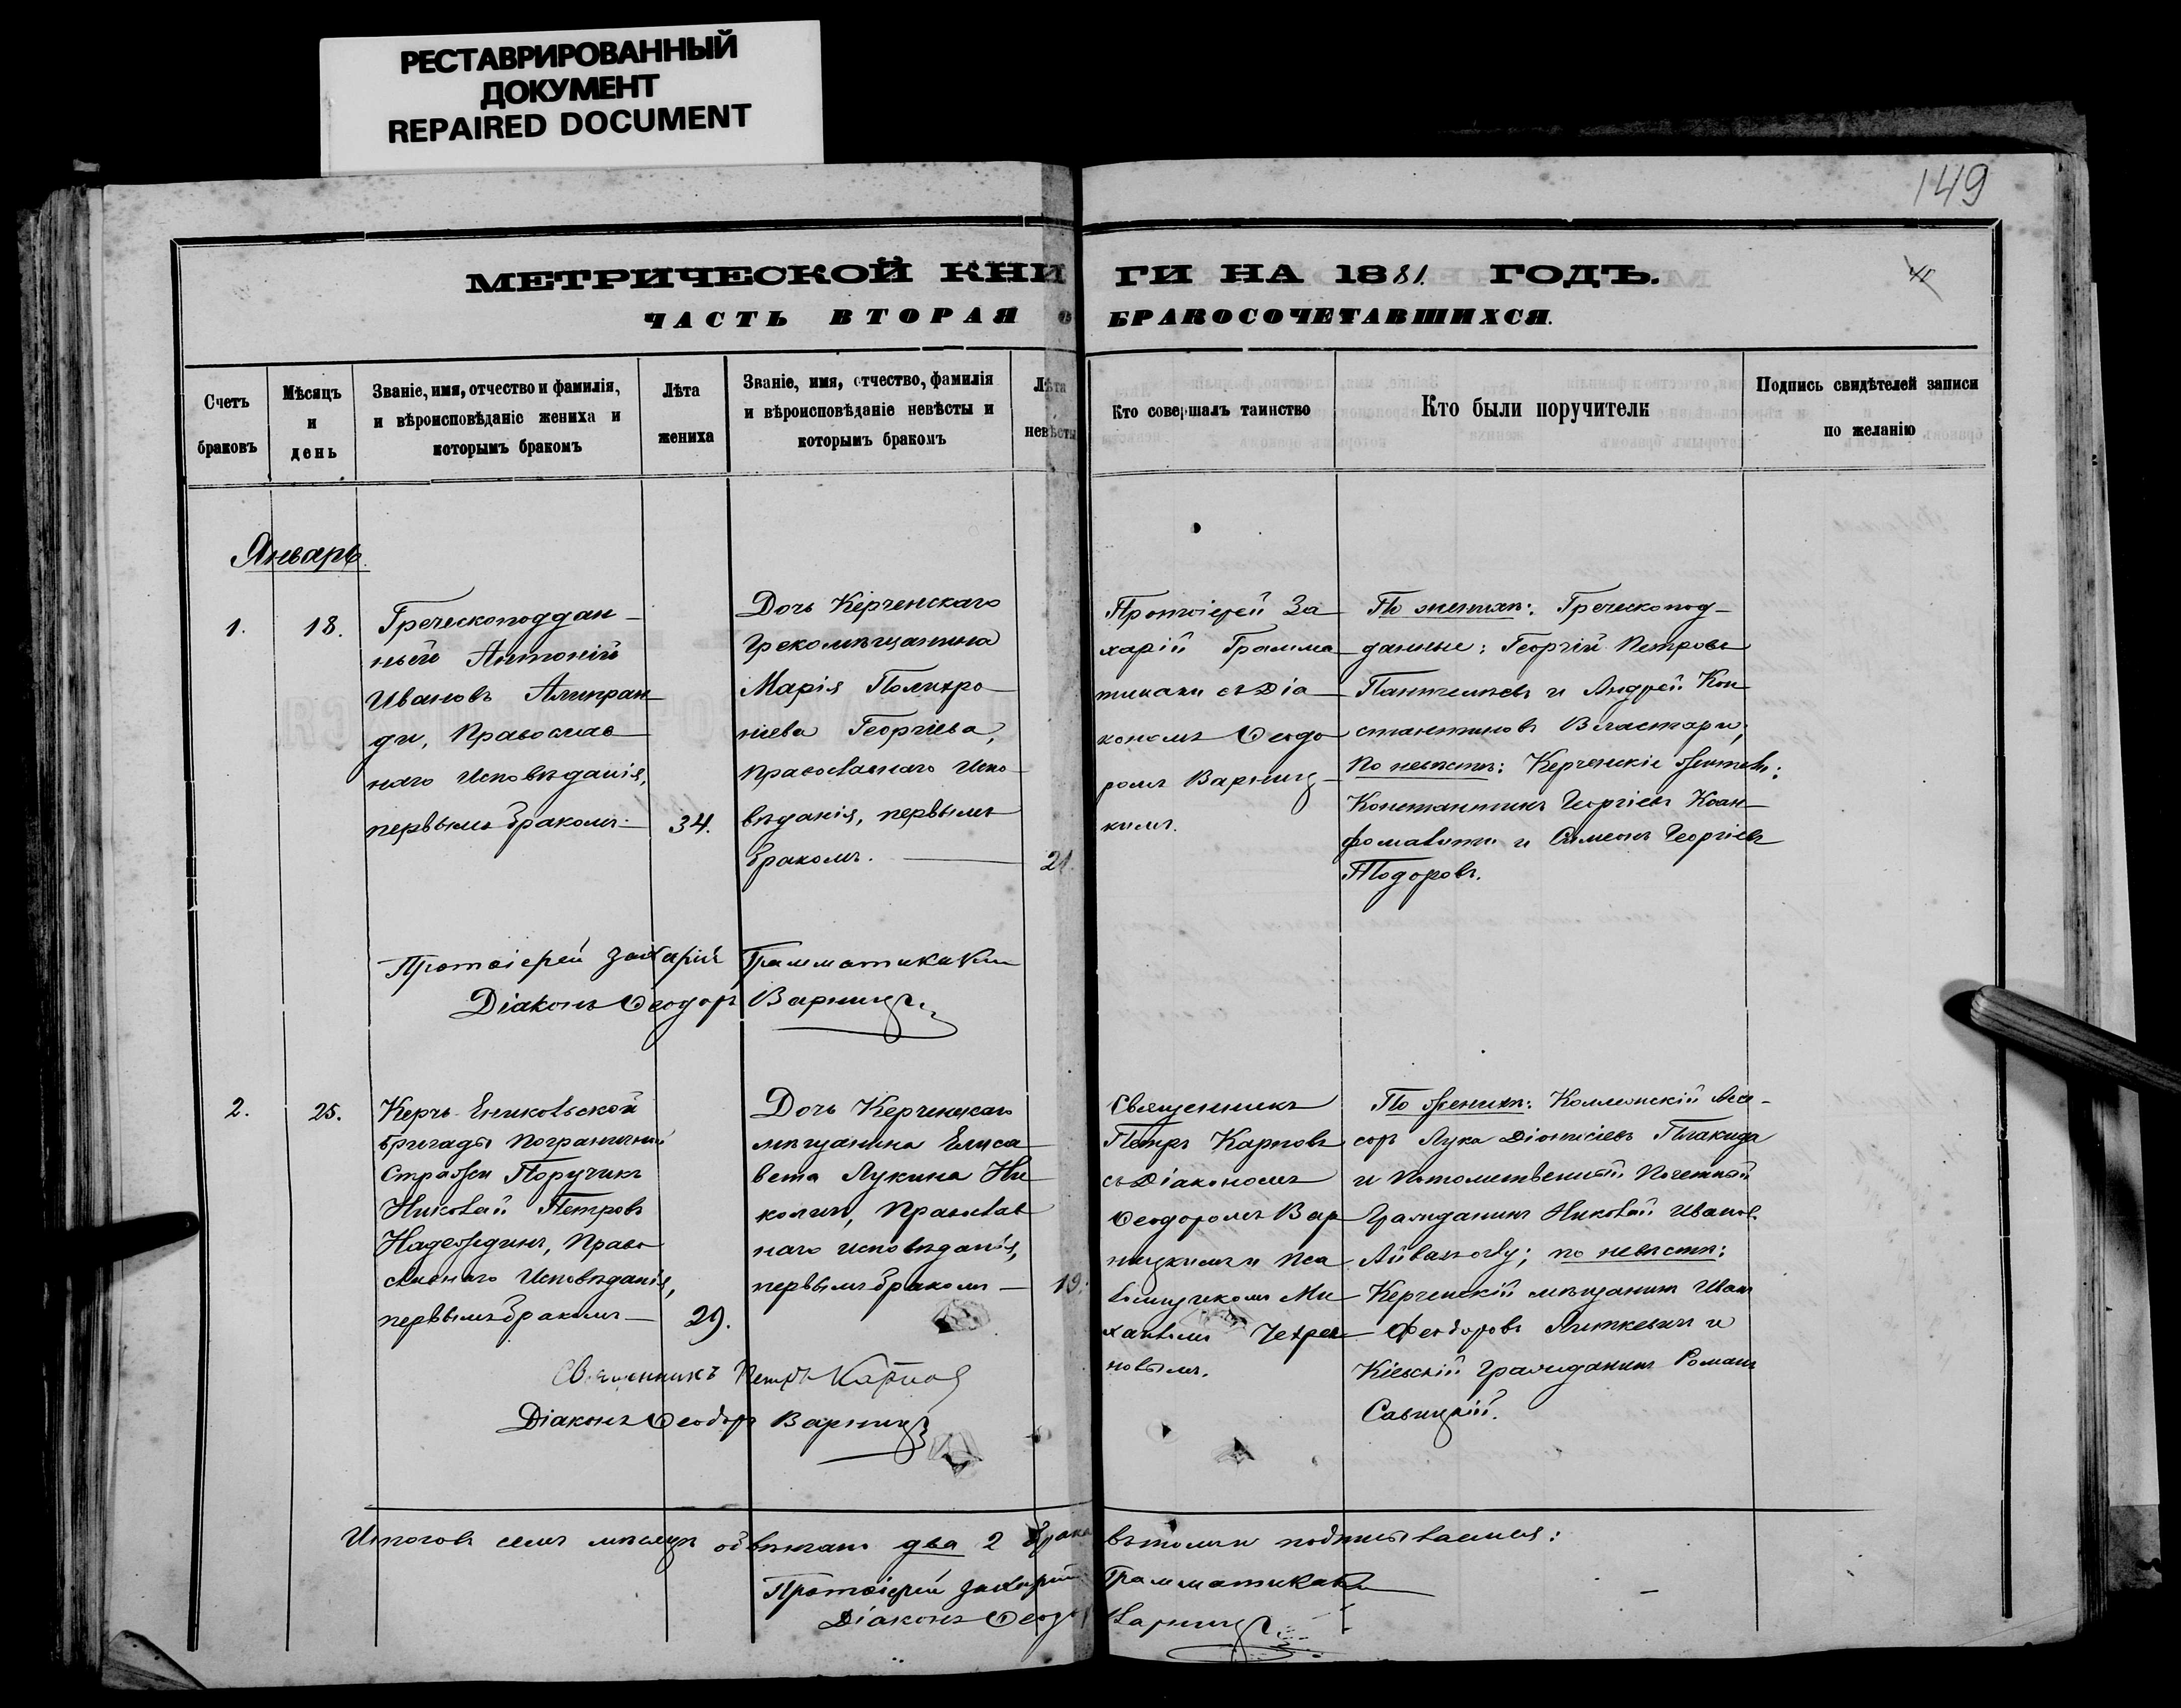 РЕСТАВРИРОВАННЫЙ
ДОКУМЕНТ
REPAIRED DOCUMENT
149
МЕТРИЧЕСКОЙ КНИГИ НА 1881. ГОДЪ.
ЧАСТЬ ВТОРАЯ О БРАКОСОЧЕТАВШИХСЯ.
Счетъ
браковъ
Мѣсяцъ
и
день
Званіе, имя, отчество и фамилія,
и вѣроисповѣданіе жениха и
которымъ бракомъ
Лѣта
жениха
Званіе, имя, отчество, фамилія
и вѣроисповѣданіе невѣсты и
которымъ бракомъ
Лѣта
невѣсты
Кто совершалъ таинство
Кто были поручители
Подпись свидѣтелей записи
по желанію
Январь.
1.
18.
Греческоподдан-
ный Антоній
Ивановъ Алипран
ди, Православ
наго Исповѣданія,
первымъ бракомъ-
34.
Дочь Керченскаго
Грекомѣщанина
Марія Полихро-
ніева Георгіева,
Православнаго Испо-
вѣданія, первымъ
бракомъ.
21.
Протоіерей За
харій Грамма
тикаки съ Діа
кономъ Ѳеодо
ромъ Варниц-
кимъ.
По женихѣ: Греческопод-
данные: Георгій Петровъ
Пантелѣевъ и Андрей Кон
стантиновъ Властари;
По невѣстѣ: Керченскіе жители:
Константинъ Георгіевъ
и Симеонъ Георгіевъ
Тодоровъ.
Протоіерей Захарій Грамматикаки
Діаконъ Ѳеодоръ Варниц
2.
25.
Керчь-Ениковской
бригады Пограничной
Стражи Поручикъ
Николай Петровъ
Надеждинъ, Право
славнаго Исповѣданія,
первымъ бракомъ-
29.
Дочь Керченскаго
мѣщанина Елиса
вета Лукина Ни
колич, Православ
наго исповѣданія,
первымъ бракомъ-
19.
Священникъ
Петръ Карповъ
съ Діакономъ
Ѳеодоромъ Вар
ницкимъ и Пса
ломщикомъ Ми
хаиломъ
новымъ.
По женихѣ: Коллежскій Асес-
соръ Лука Діонисіевъ Плакида
и Потомственный Почетный
Гражданинъ Николай Иванов.
Айвазовъ; по невѣстѣ:
Керченскій мѣщанинъ Иванъ
Феодоровъ Литкевичъ и
Кіевскій Гражданинъ Романъ
Савицкій.
Священникъ Петръ Карпов
Діаконъ Ѳеодоръ Варниц
Итого въ семъ мѣсяцѣ обвѣнчано два 2 брака въ томъ и подписываемся:
Протоіерей Захарій Грамматикаки
Діаконъ Ѳеодор Варниц